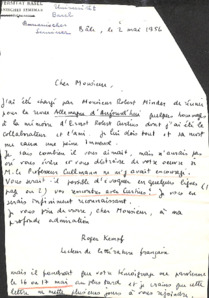 Universität
Basel
Romanisches
Seminar
Bâle, le 2 mai 1956
Cher Monsieur,
J'ai été chargé par Monsieur Robert Minder de réunir
pour la revue Allemagne d'Aujourd'hui quelques hommages
à la mémoire d'Ernst Robert Curtius dont j'ai été le
collaborateur et l'ami. Je lui dois tout et sa mort
me cause une peine immense.
Je sais combien il vous aimait, mais n'aurais pas
osé vous écrire et vous distraire de votre oeuvre si
M. le Professeur Cullmann ne m'y avait encouragé.
Vous serait-il possible d'évoquer en quelques lignes (1
page ou 2) vos rencontres avec Curtius? Je vous en
serais infiniment reconnaissant.
Je vous prie de croire, cher Monsieur, à ma
profonde admiration
Roger Kempf
Lecteur de littérature française
mais il faudrait que votre témoignage me parvienne
le 16 ou 17 mai au plus tard et je crains que cette
lettre ne mette plusieurs jours à vous rejoindre.